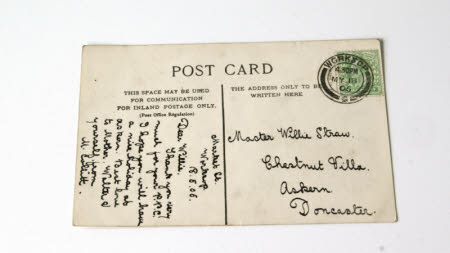 POST CARD
THIS SPACE MAY BE USED
FOR COMMUNICATION
FOR INLAND POSTAGE ONLY.
(Post Office Regulation)
THE ADDRESS ONLY TO BE
WRITTEN HERE.
WORKSOP
4.30PM
MY 18
06
Market St.
Worksop
18.5.06.
Dear Willie,
Thank you very
much for your p.p.c.
I hope you will have
a nice holiday at
Askern. Best love
to Mother, Walter &
yourself from
M.
Master Willie Straw.
Chestnut Villa.
Askern.
Doncaster.